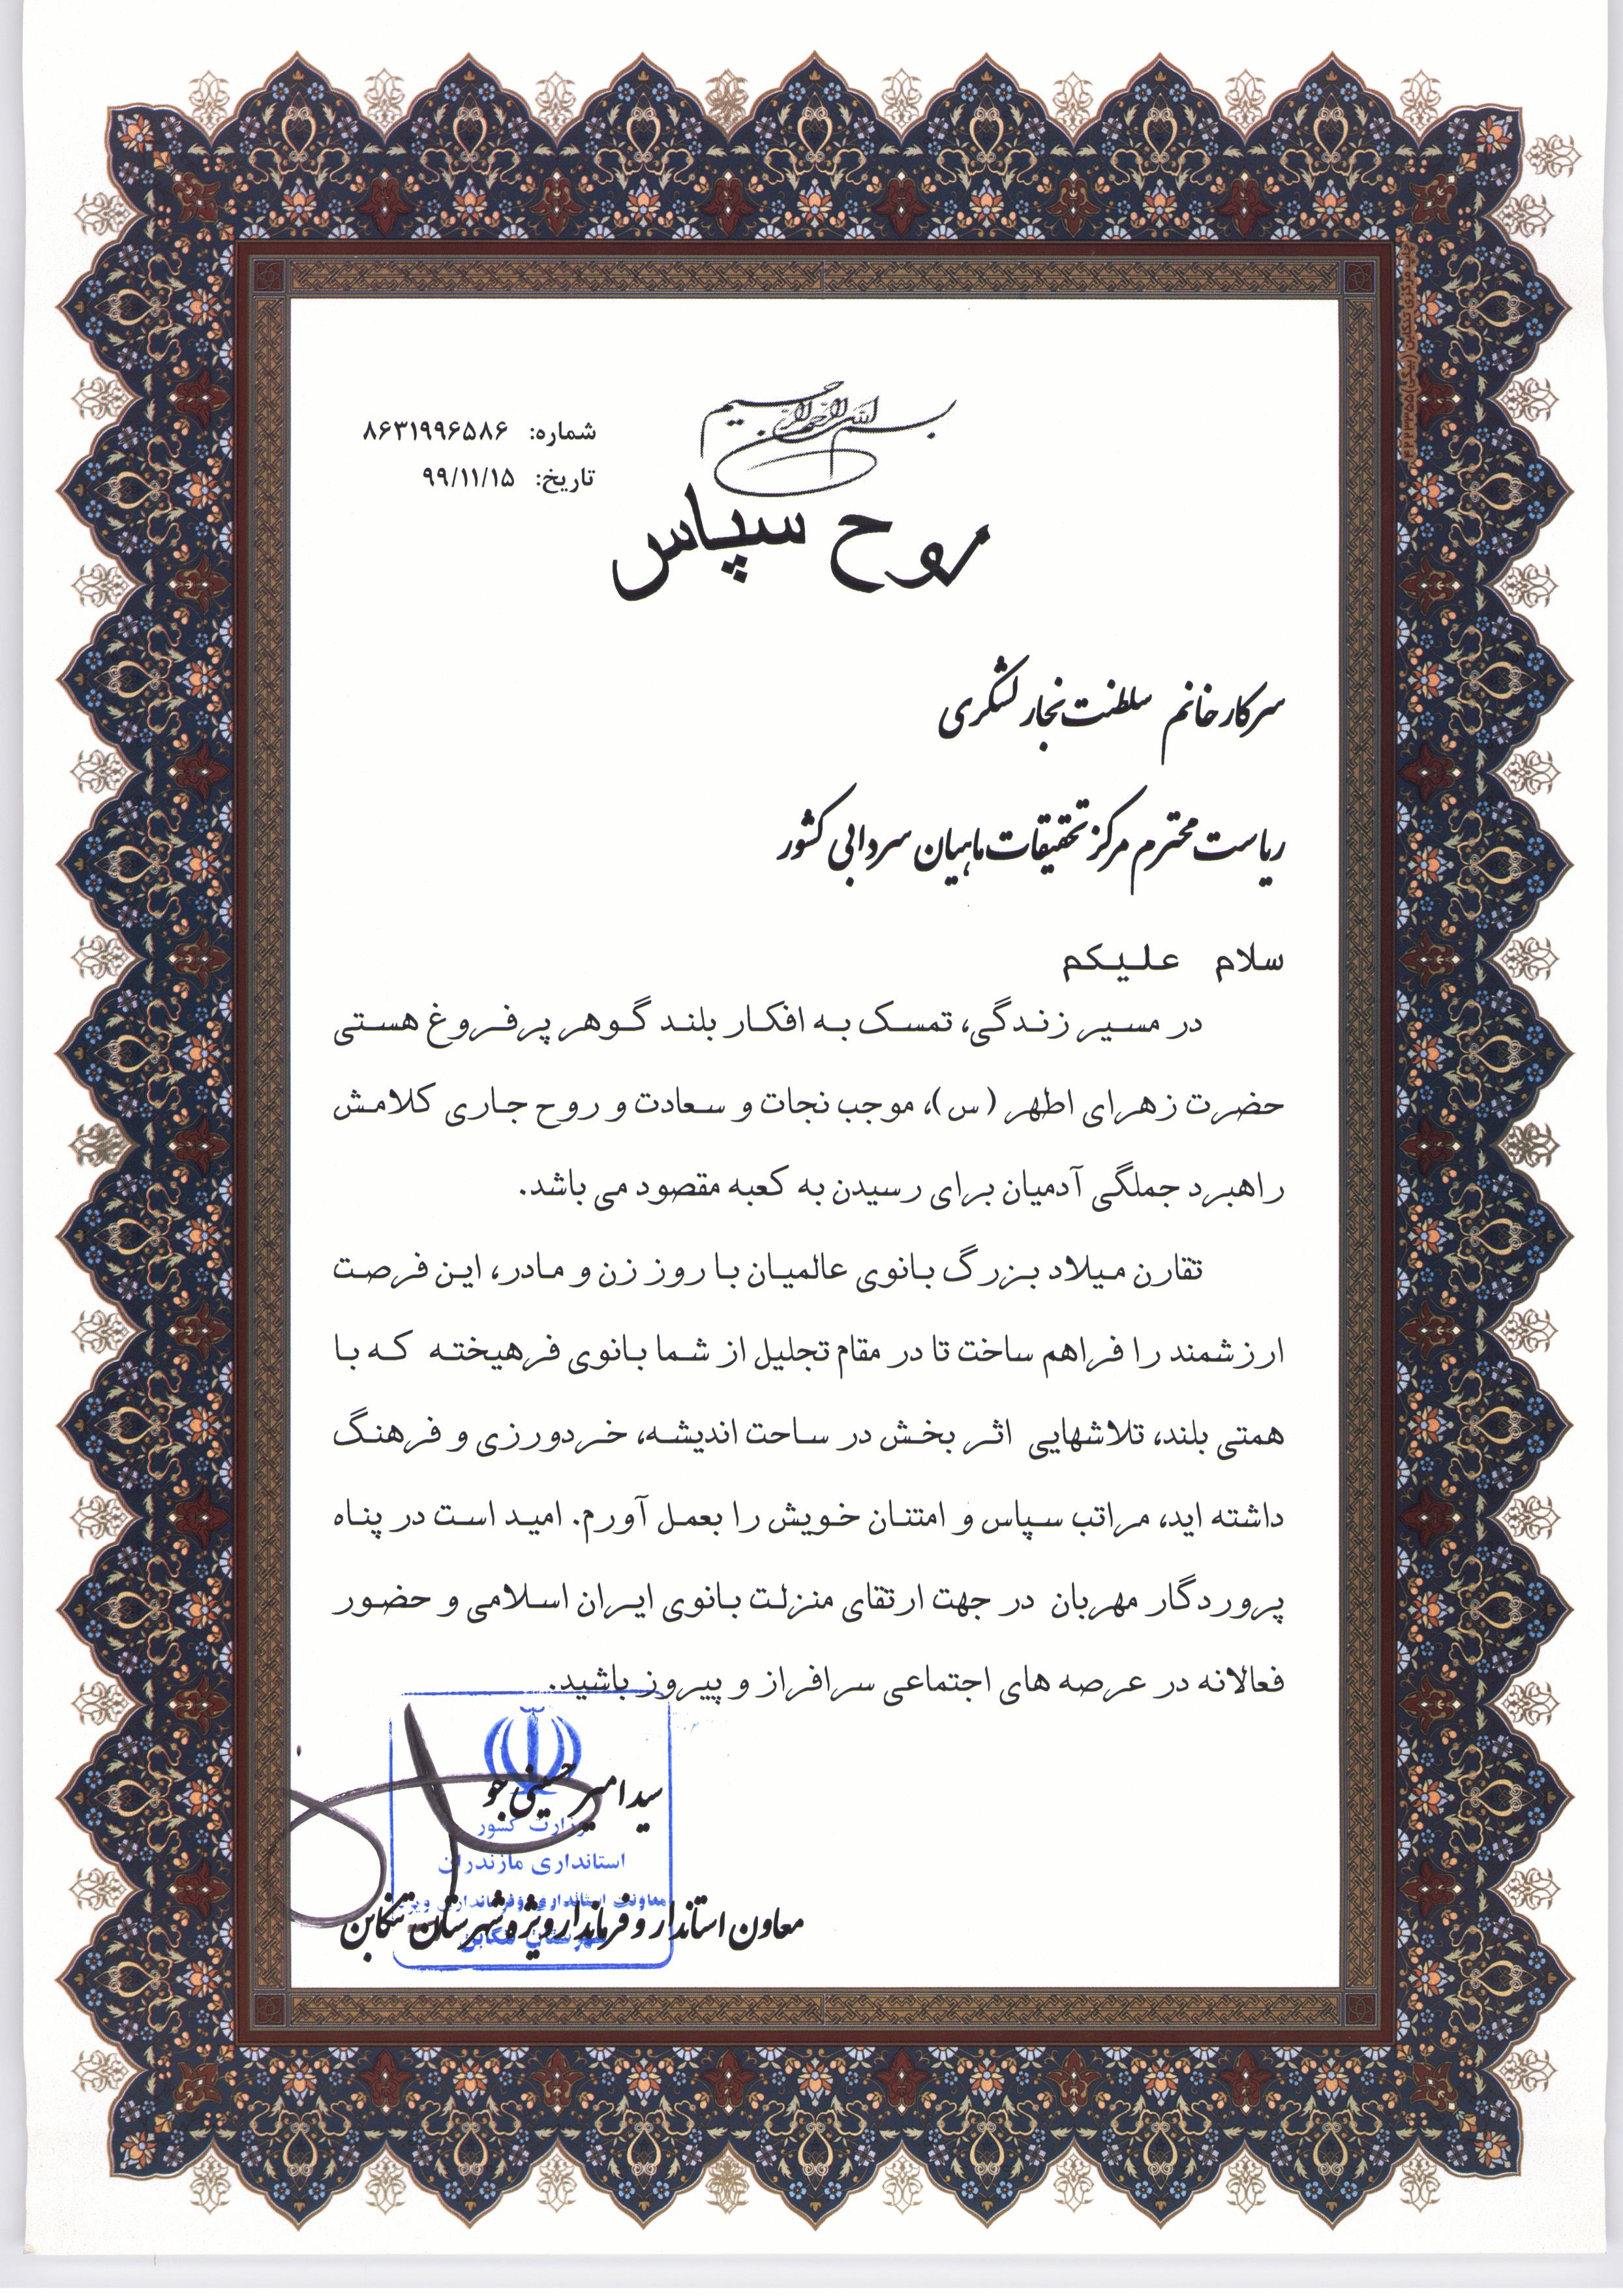 بسم الله الرحمن الرحیم
شماره: ۸۶۳۱۹۹۶۵۸۶
تاریخ: ۹۹/۱۱/۱۵
روح سپاس
سرکار خانم سلطنت نجار لشگری
ریاست محترم مرکز تحقیقات ماهیان سردابی کشور
سلام علیکم
در مسیر زندگی، تمسک به افکار بلند گوهر پرفروغ هستی
حضرت زهرای اطهر (س)، موجب نجات و سعادت و روح جاری کلامش
راهبرد جملگی آدمیان برای رسیدن به کعبه مقصود می باشد.
تقارن میلاد بزرگ بانوی عالمیان با روز زن و مادر، این فرصت
ارزشمند را فراهم ساخت تا در مقام تجلیل از شما بانوی فرهیخته که با
همتی بلند، تلاشهایی اثر بخش در ساحت اندیشه، خردورزی و فرهنگ
داشته اید، مراتب سپاس و امتنان خویش را بعمل آورم. امید است در پناه
پروردگار مهربان در جهت ارتقای منزلت بانوی ایران اسلامی و حضور
فعالانه در عرصه های اجتماعی سرافراز و پیروز باشید.
سید امیر حسینی جو
وزارت کشور
استانداری مازندران
معاونت استانداری و فرمانداری ویژه
معاون استاندار و فرماندار ویژه شهرستان تنکابن
شهرستان تنکابن